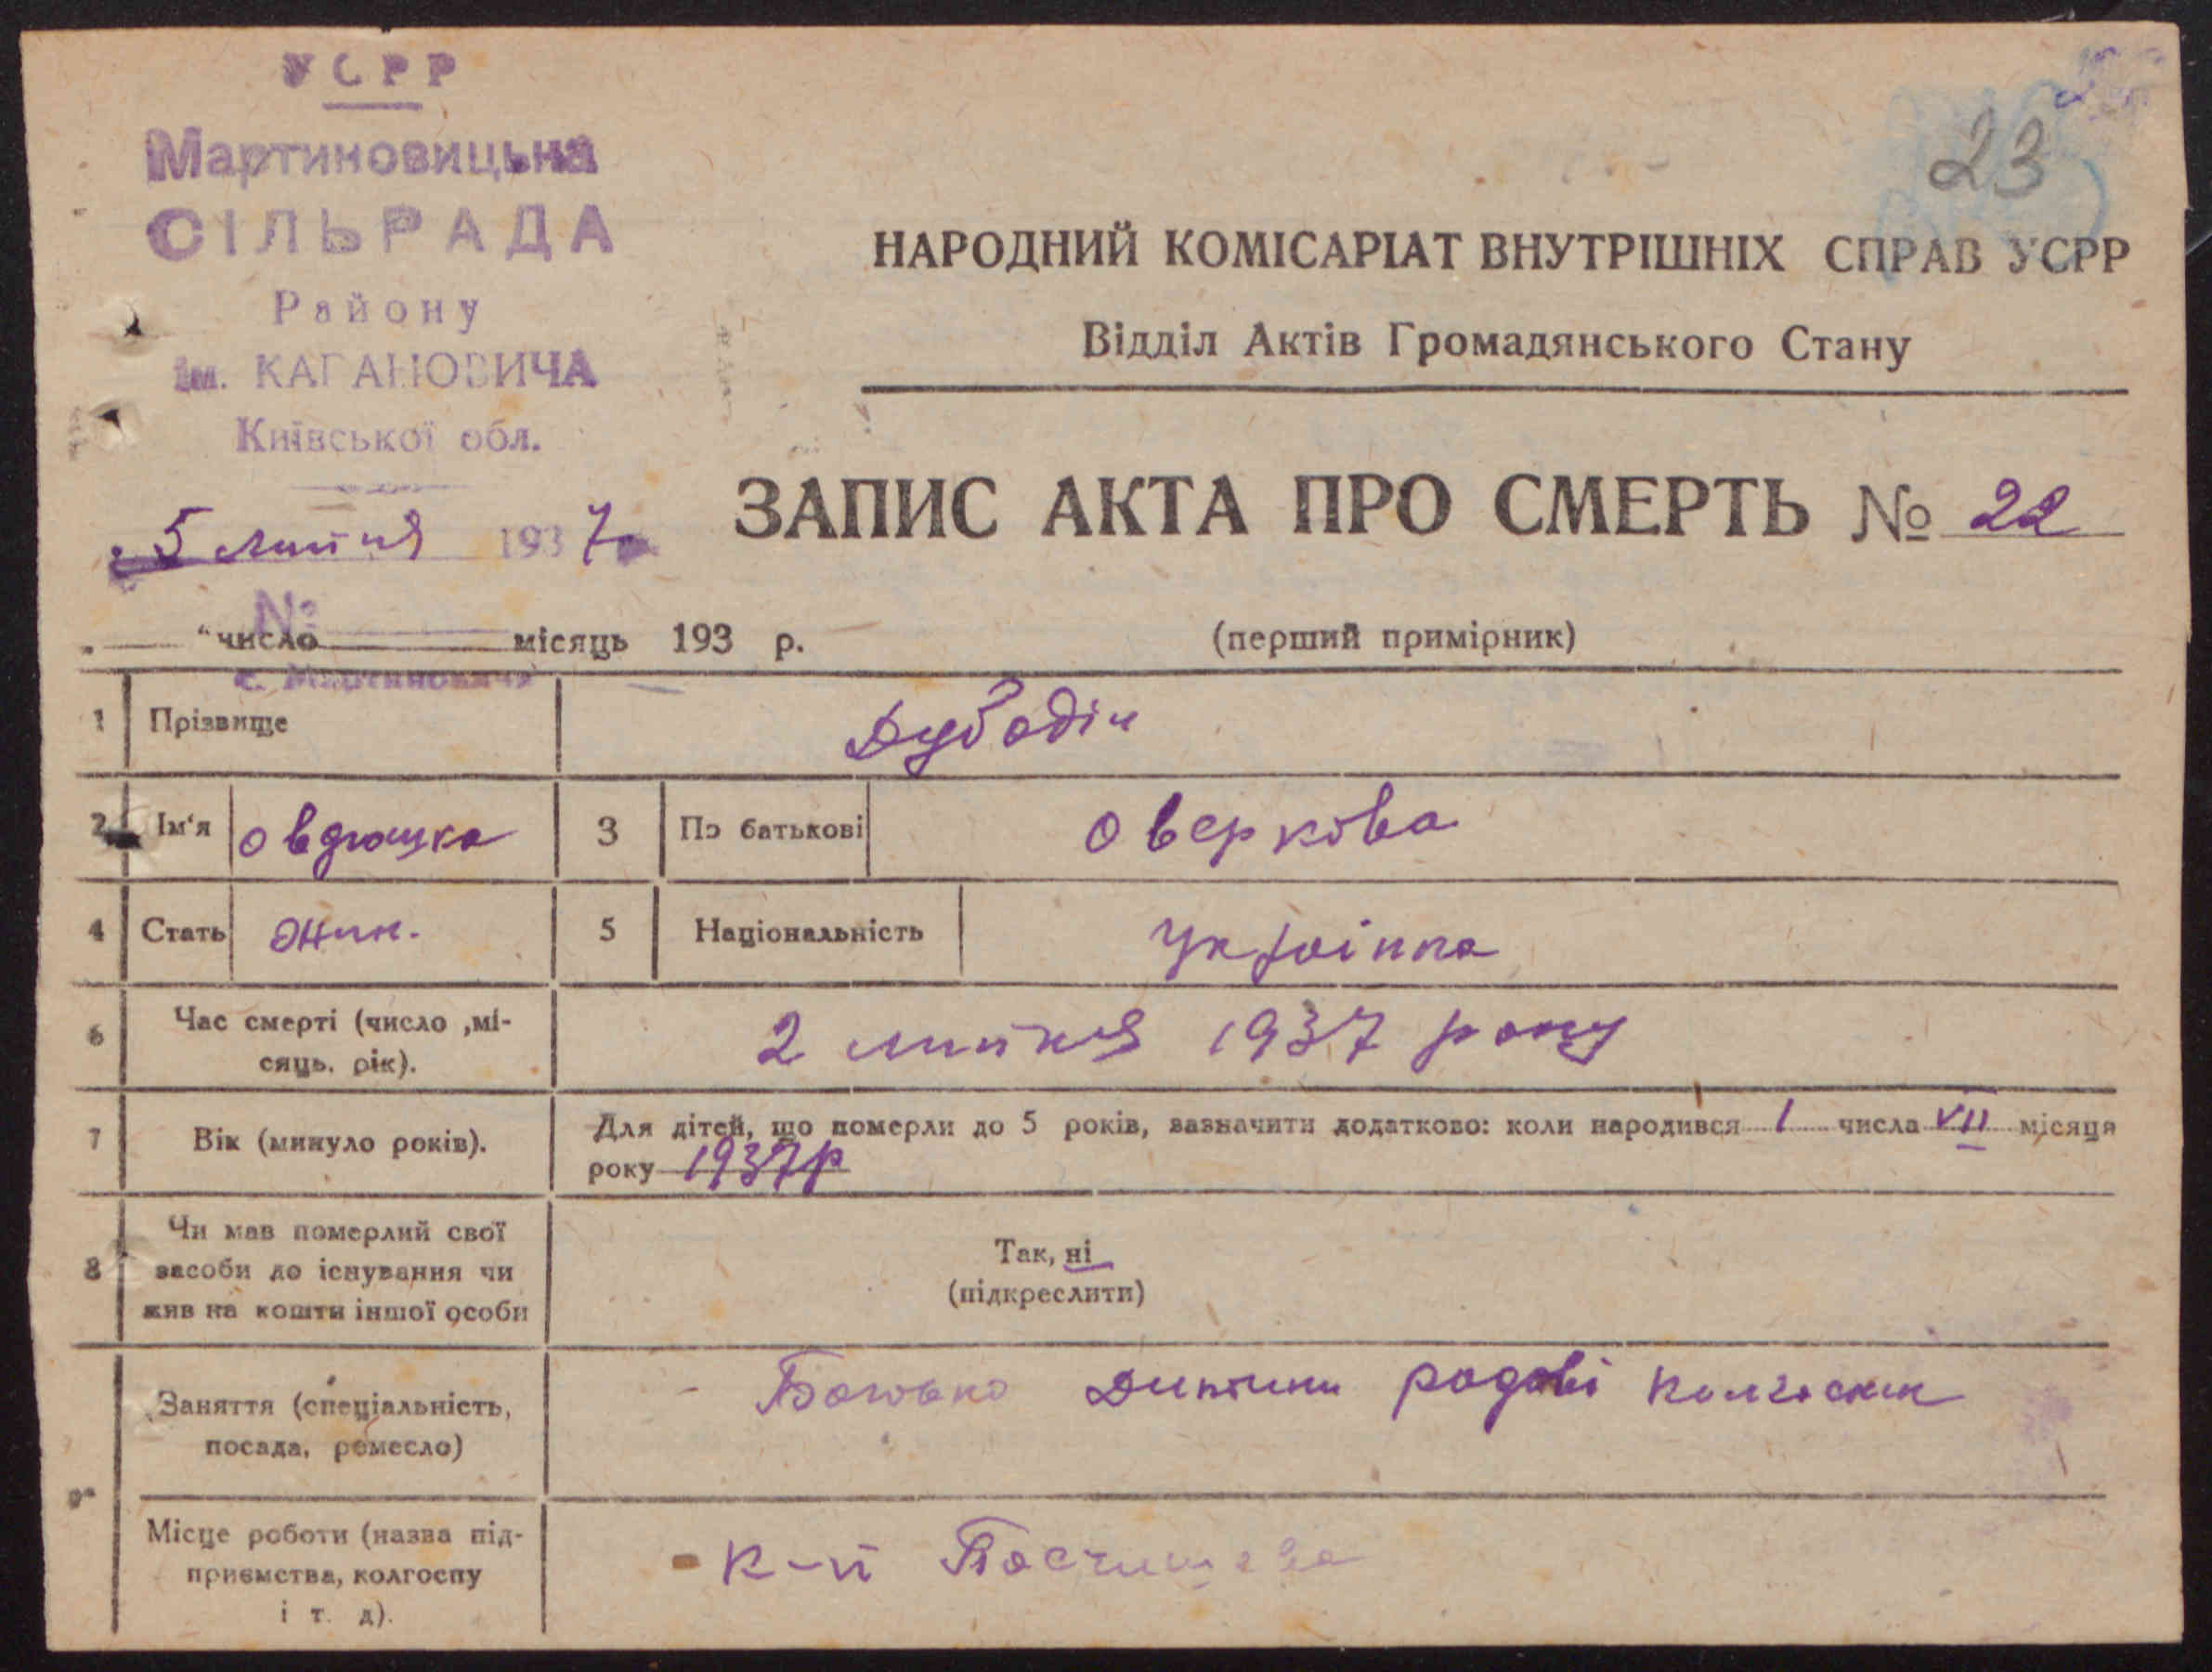 УСРР
Мартиновицьна
СІЛЬРАДА
Району
ім. КАГАНОВИЧА
Київської обл.
5 липня 1937
№
с. Мартиновичі
23
НАРОДНИЙ КОМІСАРІАТ ВНУТРІШНІХ СПРАВ УСРР
Відділ Актів Громадянського Стану
ЗАПИС АКТА ПРО СМЕРТЬ № 22
„ “ число місяць 193 р.
(перший примірник)
1 Прізвище Дубодін
2 Ім'я Овдюшка 3 По батькові Оверкова
4 Стать жин. 5 Національність Українка
6 Час смерті (число ,мі-
сяць, рік). 2 липня 1937 року
7 Вік (минуло років). Для дітей, що померли до 5 років, зазначити додатково: коли народився 1 числа VII місяця
року 1937р
8 Чи мав померлий свої
засоби до існування чи
жив на кошти іншої особи
Так, ні
(підкреслити)
Заняття (спеціальність,
посада, ремесло)
Батько дитини родові колгосник
Місце роботи (назва під-
приємства, колгоспу
і т. д).
к-п Постишева